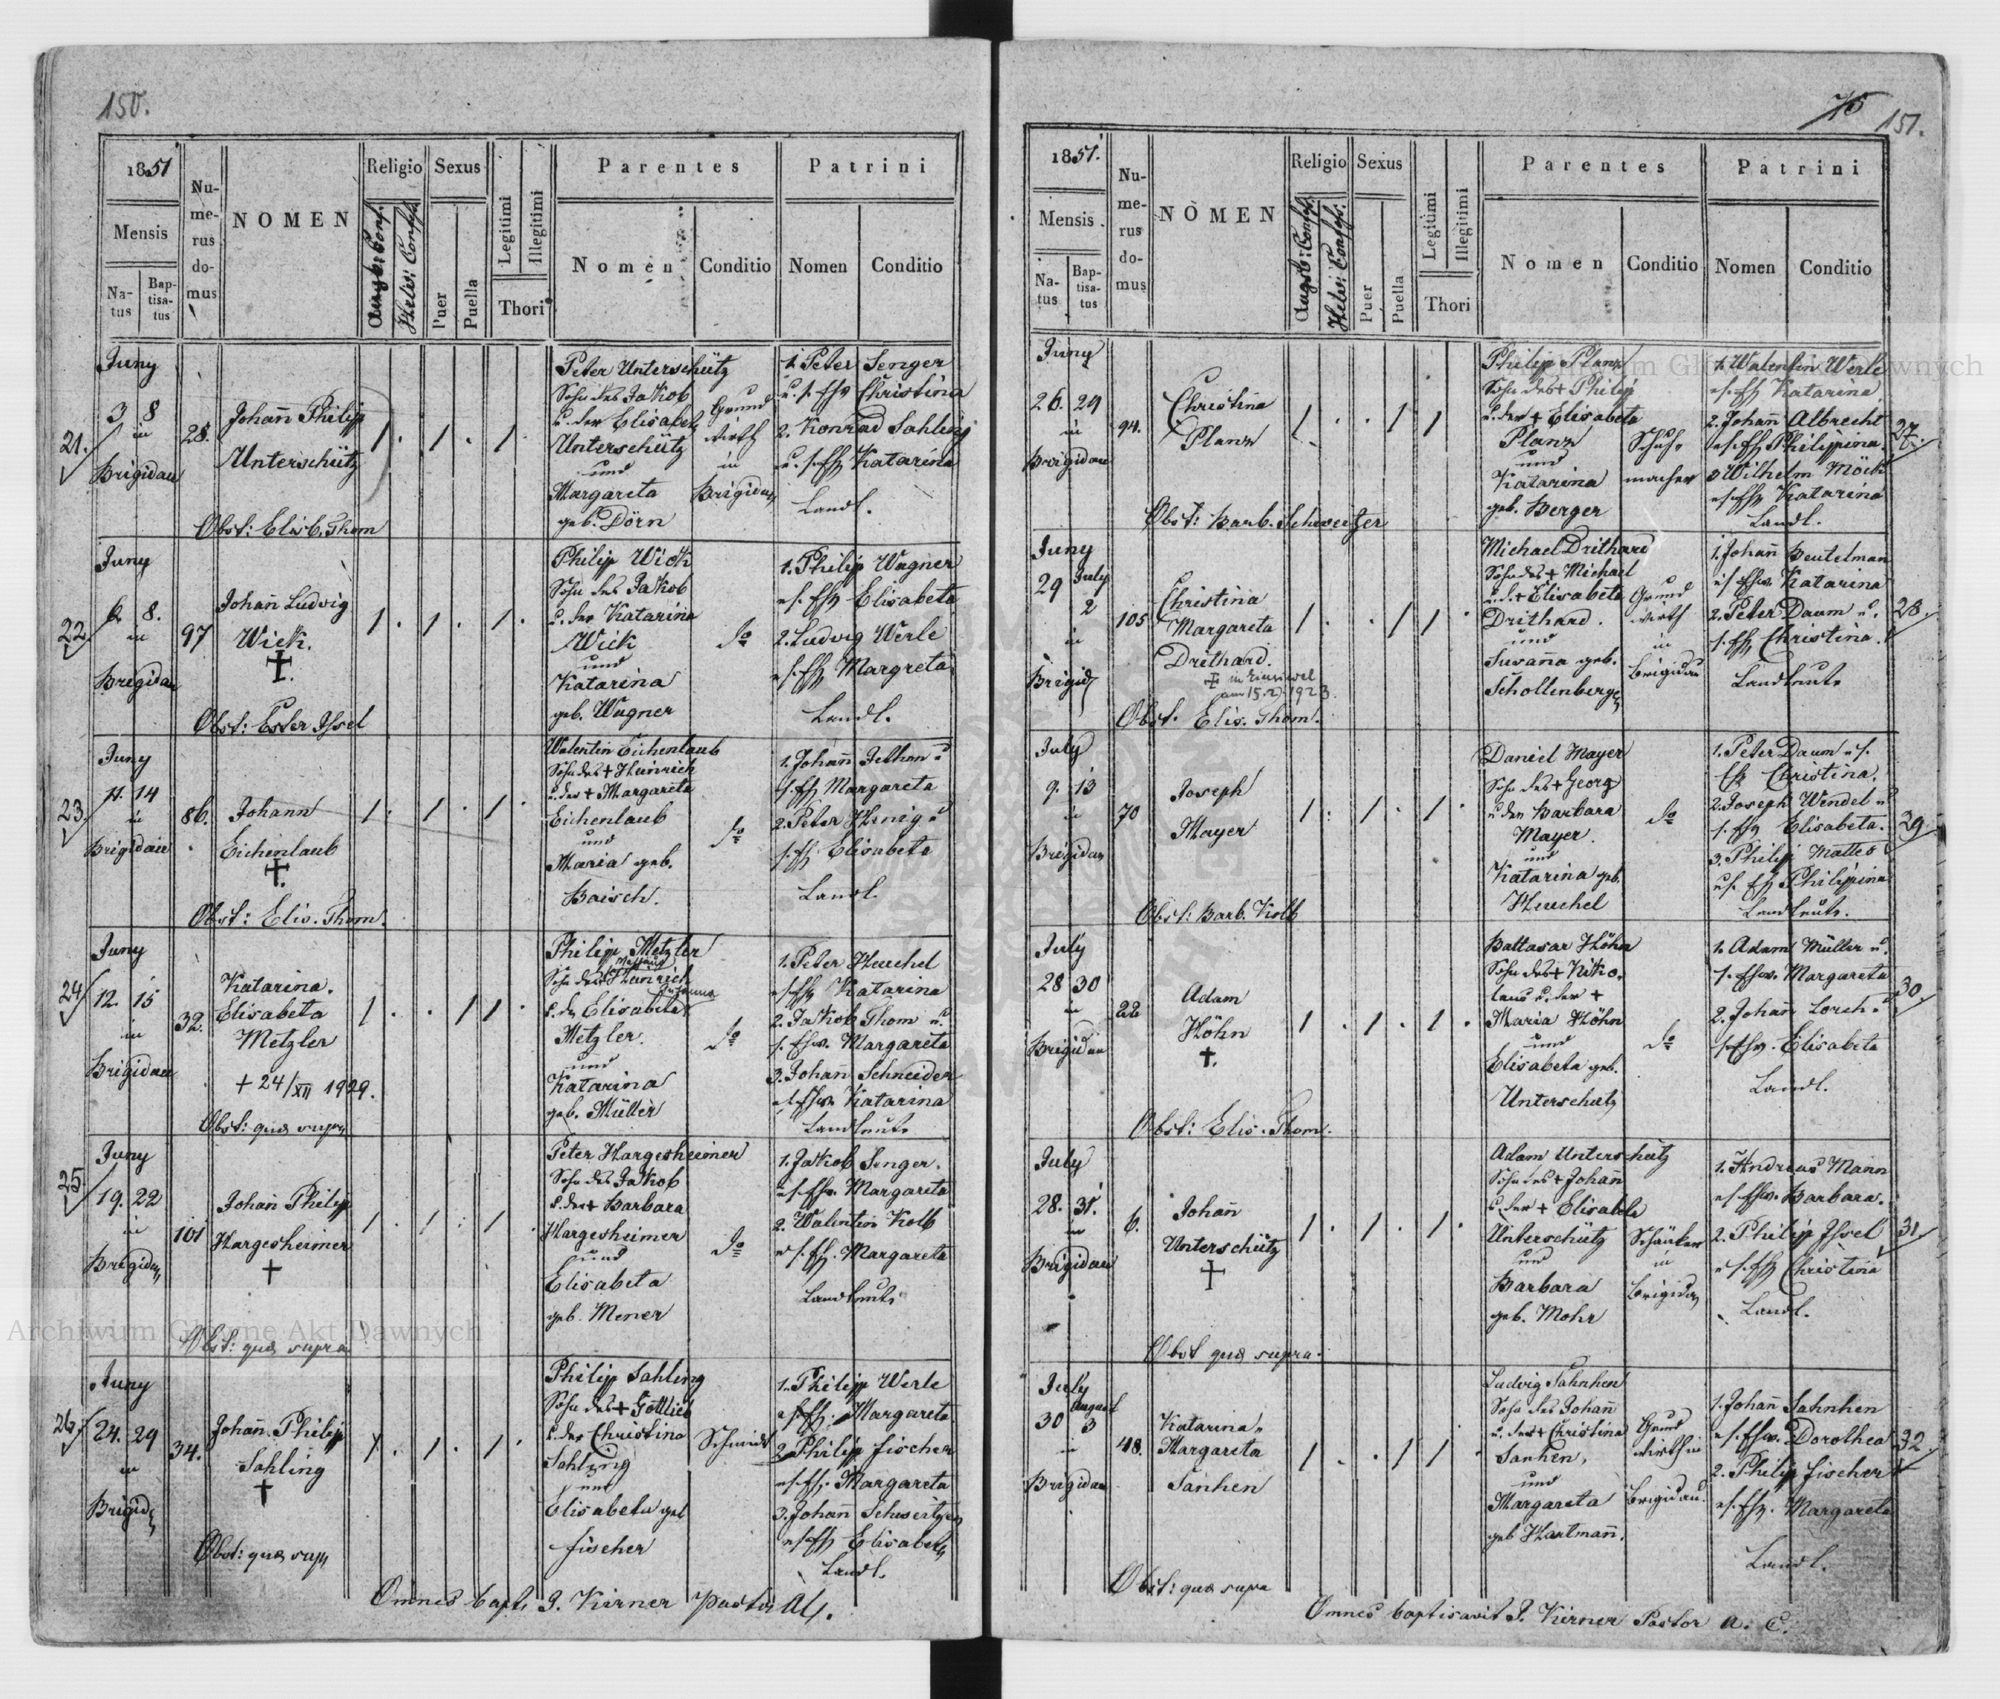 150.
1851
Mensis
Na-
tus
Bap-
tisa-
tus
Nu-
me-
rus
do-
mus
NOMEN
Religio
Augsb: Conf.
Helv: Conf.
Sexus
Puer
Puella
Legitimi
Illegitimi
Thori
Parentes
Nomen
Conditio
Patrini
Nomen
Conditio
21.
Juny
3 8
in
Brigidau
28.
Johann Philip
Unterschütz
Obst: Elis b. Thom
1 . 1 . 1 .
Peter Unterschütz
Sohn des Jakob
u. der Elisabet
Unterschütz
und
Margareta
geb. Dörn
Grund
wirth
in
Brigidau
1. Peter Senger
u. s. Ehf Christina
2. Konrad Sahling
u. s. Ehf Katarina
Landl.
22.
Juny
6 8.
in
Brigidau
97
Johann Ludwig
Wick.
Obst: Ester Issel
1 . 1 . 1 .
Philip Wick
Sohn des Jakob
u. der Katarina
Wick
und
Katarina
geb. Wagner
do
1. Philip Wagner
u s. Ehf Elisabeta
2. Ludwig Werle
u s. Ehf Margreta
Landl.
23.
Juny
11. 14
in
Brigidau
86.
Johann
Eichenlaub
Obst: Elis. Thom.
1 . 1 . 1 .
Valentin Eichenlaub
Sohn des + Heinrich
u. der + Margareta
Eichenlaub
und
Maria geb.
Baisch.
do
1. Johann Jethon u
s. Ehf Margareta
2. Peter Henig u
s. Ehf Elisabeta
Landl.
24.
Juny
12. 15
in
Brigidau
32.
Katarina.
Elisabeta
Metzler
+ 24/XII 1929.
Obst: quae supra
1 . . 1 1 .
Philip Metzler
Sohn des + Heinrich
u. der Elisabeta
Susanna
Metzler.
und
Katarina
geb. Müller
do
1. Peter Heuchel
u s. Ehf Katarina
2. Jakob Thom u.
s. Ehw. Margareta
3. Johan Schneider
u s. Ehw. Katarina
Landleute
25.
Juny
19. 22
in
Brigidau
101
Johann Philip
Hargesheimer
Obst: quae supra
1 . 1 . 1 .
Peter Hargesheimer
Sohn des Jakob
u. der + Barbara
Hargesheimer
und
Elisabeta
geb. Mener
do
1. Jakob Senger.
u s. Ehw. Margareta
2. Valentin Kolb
u s. Ehf. Margareta
Landleute
26.
Juny
24. 29
in
Brigid
34.
Johann Philip
Sahling
Obst: quae supr
1 . 1 . 1 .
Philip Sahling
Sohn des + Gottlieb
u. der Christina
Sahling
und
Elisabeta geb
Fischer
Schmidt
1. Philip Werle
u s. Ehf. Margareta
2. Philip Fischer
u s. Ehf. Margareta
3. Johann Schweitzer
u s. Ehf Elisabeta
Landl.
Omnes bapt. J. Kirner Pastor
75
151.
1851.
Mensis
Na-
tus
Bap-
tisa-
tus
Nu-
me-
rus
do-
mus
NOMEN
Religio
Augsb: Conf.
Helv: Conf.
Sexus
Puer
Puella
Legitimi
Illegitimi
Thori
Parentes
Nomen
Conditio
Patrini
Nomen
Conditio
Juny
26. 29
in
Brigidau
94.
Christina
Planz
Obst: Barb. Schweitzer
1 . . 1 1
Philip Planz
Sohn des + Philip
u. der + Elisabeta
Planz
und
Katarina
geb. Berger
Schuh-
macher
1. Valentin Werle
u s. Ehf Katarina
2. Johann Albrecht
u s. Ehf Philippina
3 Wilhelm Möck
u s. Ehf Katarina
Landl.
27.
Juny
29 July
2
in
Brigid
105
Christina
Margareta
Drithard.
in Einsiedel
am 15.2.1923.
Obst. Elis. Thom.
1 . . 1 1 .
Michael Drithard
Sohn des + Michael
u. d. + Elisabeta
Drithard.
und
Susanna geb.
Schollenberger
Grund
wirth
in
Brigidau
1. Johann Beutelman
u s. Ehw. Katarina
2. Peter Daum u.
s. Ehf Christina.
Landleute
28.
July
9. 13
in
Brigidau
70
Joseph
Mayer
Obst: Barb. Kolb
1 . 1 . 1 .
Daniel Mayer
Sohn des + Georg
u. der Barbara
Mayer
und
Katarina geb.
Heuchel
do
1. Peter Daum u s.
Ehf Christina.
2. Joseph Wendel u
s. Ehf Elisabeta.
3. Philip Mattes
u s. Ehf Philippina
Landleute.
29.
July
28 30
in
Brigidau
22
Adam
Höhn
Obst: Elis. Thom.
1 . 1 . 1 .
Baltasar Höhn
Sohn des + Niko-
laus u. der +
Maria Höhn
und
Elisabeta geb.
Unterschütz
do
1. Adam Müller u.
s. Ehw. Margareta
2. Johann Lorch u
s. Ehw. Elisabeta
Landl.
30.
July
28. 31.
in
Brigidau
6.
Johann
Unterschütz
Obst quae supra.
1 . 1 . 1 .
Adam Unterschütz
Sohn des + Johann
u. der + Elisabeta
Unterschütz
und
Barbara
geb. Mohr
Schänker
in
Brigidau
1. Andreas Mann
u s. Ehw. Barbara.
2. Philip Issel
u s. Ehf Christina
Landl.
31.
July
August
30 3
in
Brigidau
48.
Katarina
Margareta
Sanhen
Obst: quae supra
1 . . 1 1 .
Ludwig Sahnhen
Sohn des Johan
u. der + Christina
Sanhen,
und
Margareta
geb Hartmann.
Grund
wirth in
Brigidau.
1. Johann Sahnhen
u s. Ehw. Dorothea
2. Philip Fischer
u s. Ehf. Margareta
Landl.
32.
Omnes baptisavit J. Kirner Pastor A. C.
Archiwum Główne Akt Dawnych
Archiwum Główne Akt Dawnych